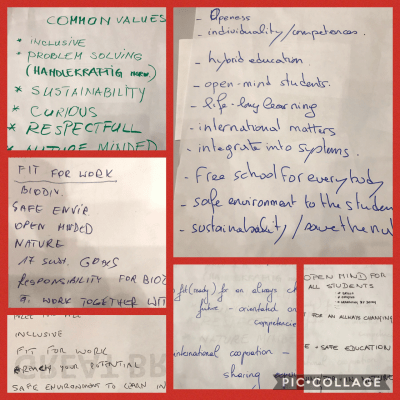 COMMON VALUES
* INCLUSIVE
* PROBLEM SOLVING
(HANDLEKRAFTIG
* SUSTAINABILITY
* CURIOUS
* RESPECTFULL
* NATURE MINDED
- Openess
- individuality/competences.
- hybrid education.
- open-mind students.
- life-long learning
- international matters
- integrate into systems.
- Free school for everybody
- safe environment to the studen
- sustainability /
FIT FOR WORK
BIODIV.
SAFE ENVIR.
OPEN MINDED
NATURE
17 SUST. GOALS
RESPONSIBILITY FOR BIOD
WORK TOGETHER WIT
INCLUSIVE
FIT FOR WORK
YOUR POTENTIAL
SAFE ENVIRONMENT TO LEARN IN
fit(ready) for an always ch
future - orientated on
competencie
international cooperation -
sharing
OPEN MIND FOR
ALL STUDENTS
FOR AN ALWAYS CHANGING
E + SAFE EDUCATION
PIC•COLLAGE